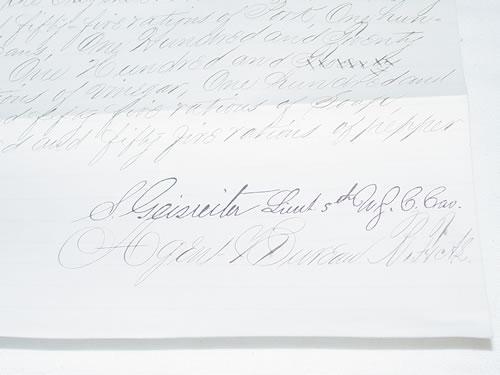 fifty five rations of Pork, One hun-
One Hundred and Twenty
One Hundred and
of vinegar, One hundred and
fifty five rations of Soap,
and fifty five rations of pepper
S Geisreiter Lieut 5th U.S. C. Cav.
Agent Bureau